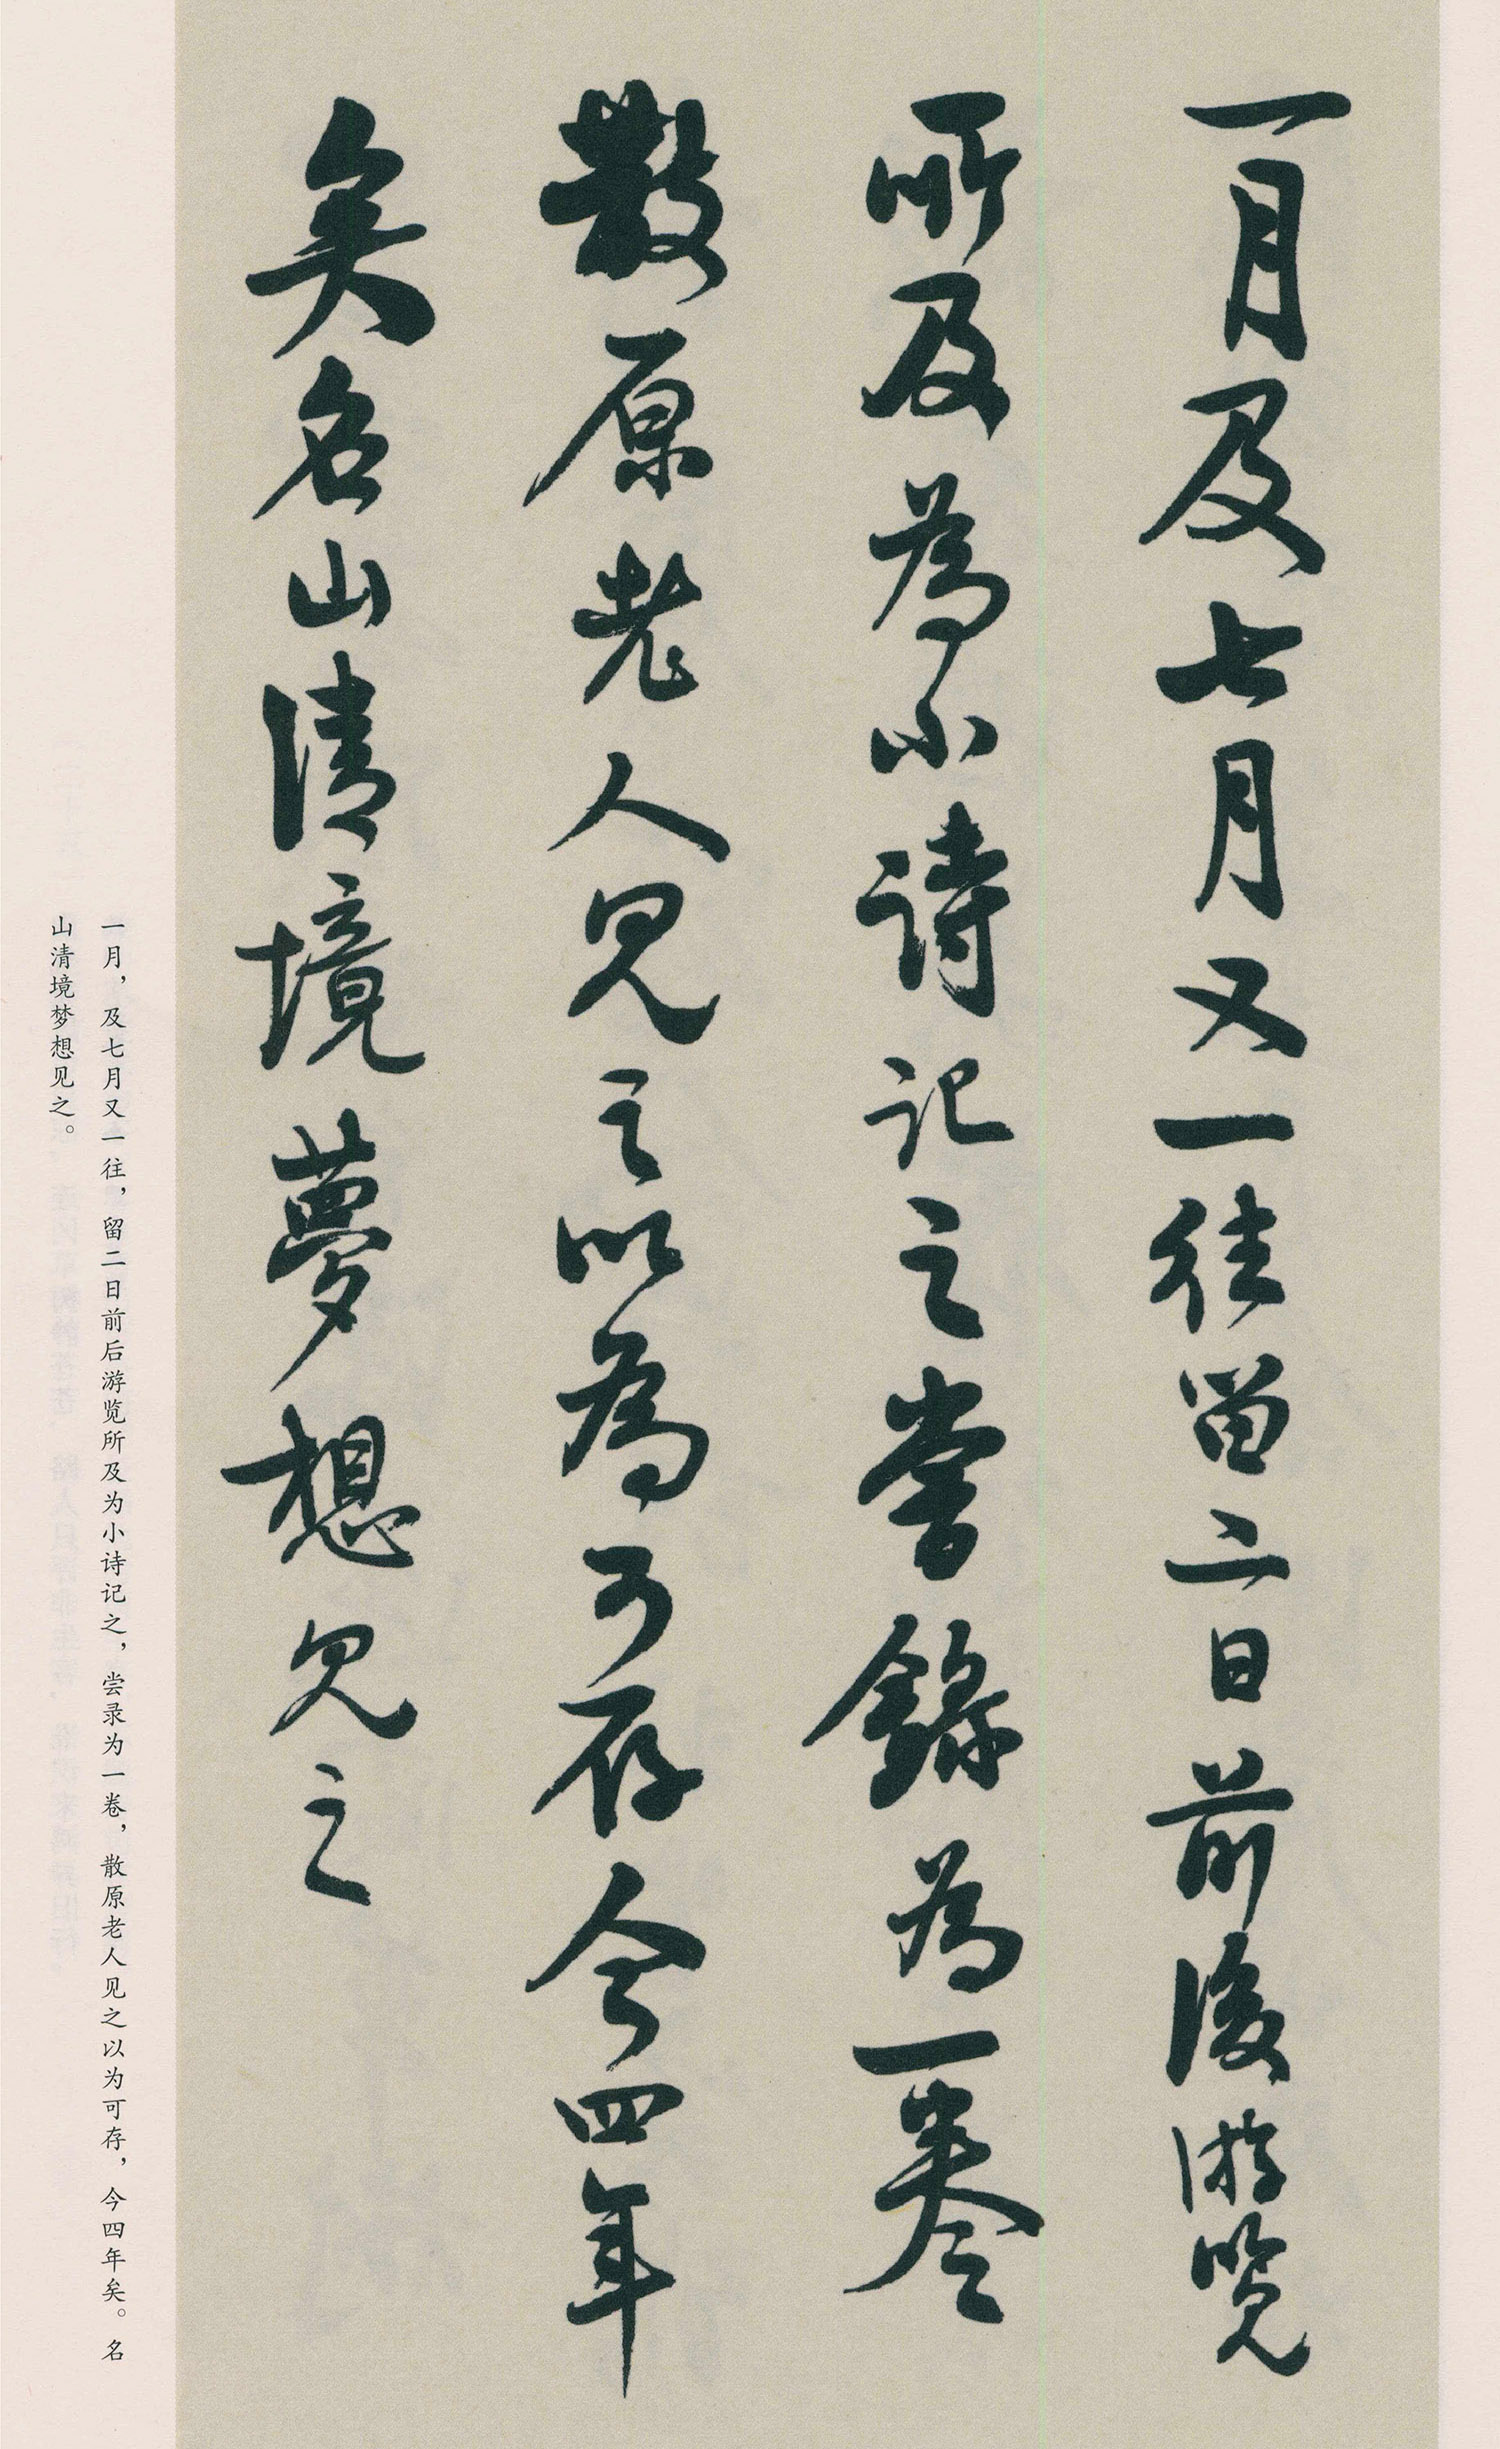 一月及七月又一往留二日前後游覽
所及為小詩記之嘗錄為一卷
散原老人見之以為可存今四年
矣名山清境夢想見之
一月，及七月又一往，留二日前后游览所及为小诗记之，尝录为一卷，散原老人见之以为可存，今四年矣。名
山清境梦想见之。